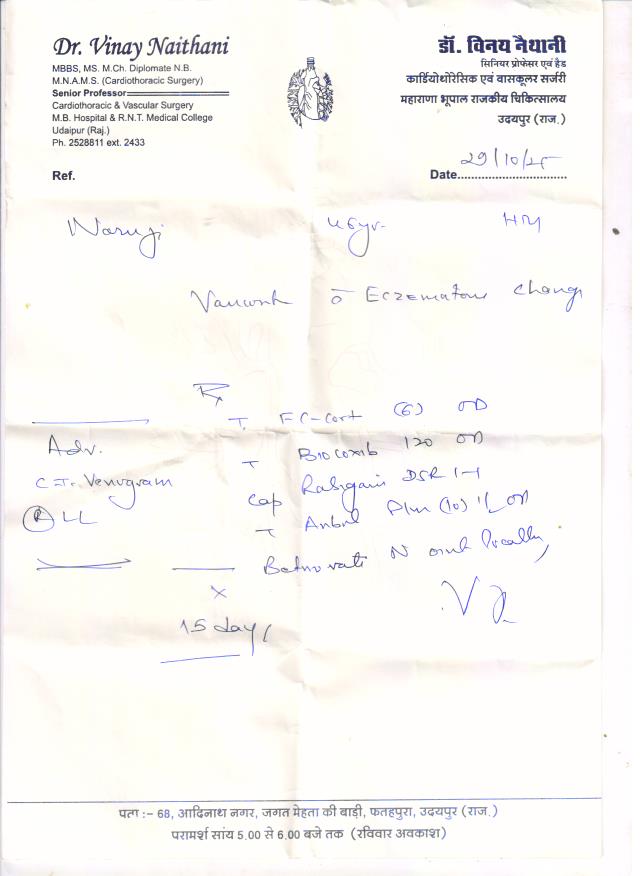 Dr. Vinay Naithani
MBBS, MS. M.Ch. Diplomate N.B.
M.N.A.M.S. (Cardiothoracic Surgery)
Senior Professor
Cardiothoracic & Vascular Surgery
M.B. Hospital & R.N.T. Medical College
Udaipur (Raj.)
Ph. 2528811 ext. 2433
डॉ. विनय नैथानी
सिनियर प्रोफेसर एवं हैड
कार्डियोथोरेसिक एवं वासकूलर सर्जरी
महाराणा भूपाल राजकीय चिकित्सालय
उदयपुर (राज.)
29/10/25
Ref.
Date..............................
Naruji
Eczematous change
Rx
T. (6) OD
Adv.
T Biocoxib 120 OD
C.T. Venogram
Cap DSR 1-1
(R) LL
T (10) OD
Betnovate N oint locally
x
15 days
पता :– 68, आदिनाथ नगर, जगत मेहता की बाड़ी, फतहपुरा, उदयपुर (राज.)
परामर्श सांय 5.00 से 6.00 बजे तक (रविवार अवकाश)